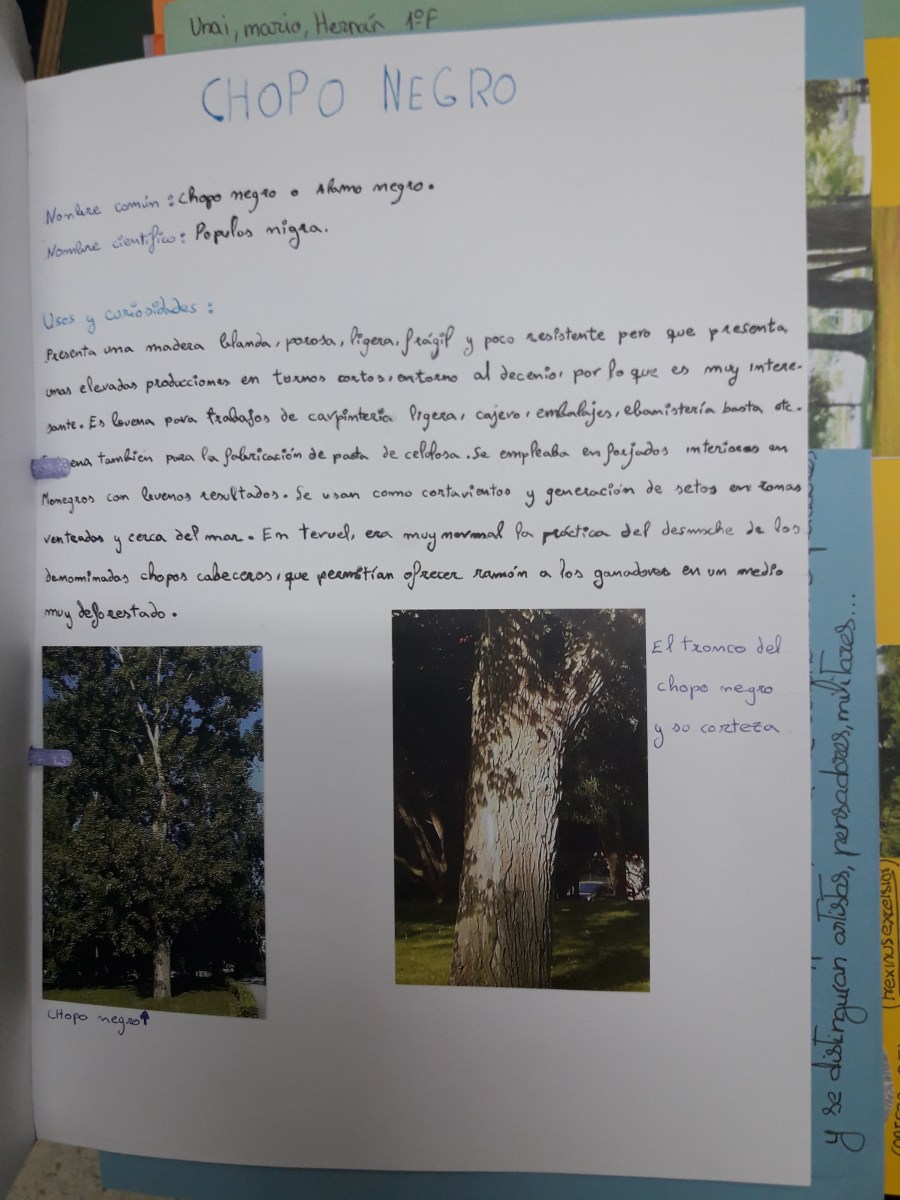 Unai, mario, Hernán 1ºF
CHOPO NEGRO
Nombre común: Chopo negro o Alamo negro.
Nombre científico: Populos nigra.
Usos y curiosidades:
Presenta una madera blanda, porosa, ligera, frágil y poco resistente pero que presenta
unas elevadas producciones en turnos cortos, entorno al decenio, por lo que es muy intere-
sante. Es buena para trabajos de carpinteria ligera, cajero, embalajes, ebanistería basta etc.
ena también para la fabricación de pasta de celolosa. Se empleaba en forjados interiores en
Monegros con buenos resultados. Se usan como cortavientos y generación de setos en zonas
venteadas y cerca del mar. En teruel, era muy normal la práctica del desmoche de los
denominadas chopos cabeceros, que permitían ofrecer ramón a los ganadores en un medio
muy deforestado.
El tronco del
chopo negro
y so corteza
CHOPO negro↑
y se distinguían artistas, pensadores, militares...
(frexinus excelsios)